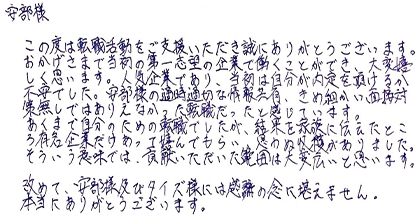 安部様
この度は転職活動をご支援いただき誠にありがとうございます。
おかげさまで当初の第一志望の企業で働くことができ、大変嬉
しく思います。人気企業であり、当初は自分が内定を頂けるか
不安でした。安部様の適時適切な情報共有、きめ細かい面接対
策無しではありえなかった転職だったと感じています。
あくまで自分のための転職でしたが、結果を家族に伝えたとこ
ろ有名企業だけあって喜んでもらい、思わぬ収穫がありました。
そういう意味では、貢献いただいた範囲は大変広いと思います。
改めて、安部様及びタイズ様には感謝の念に堪えません。
本当にありがとうございます。